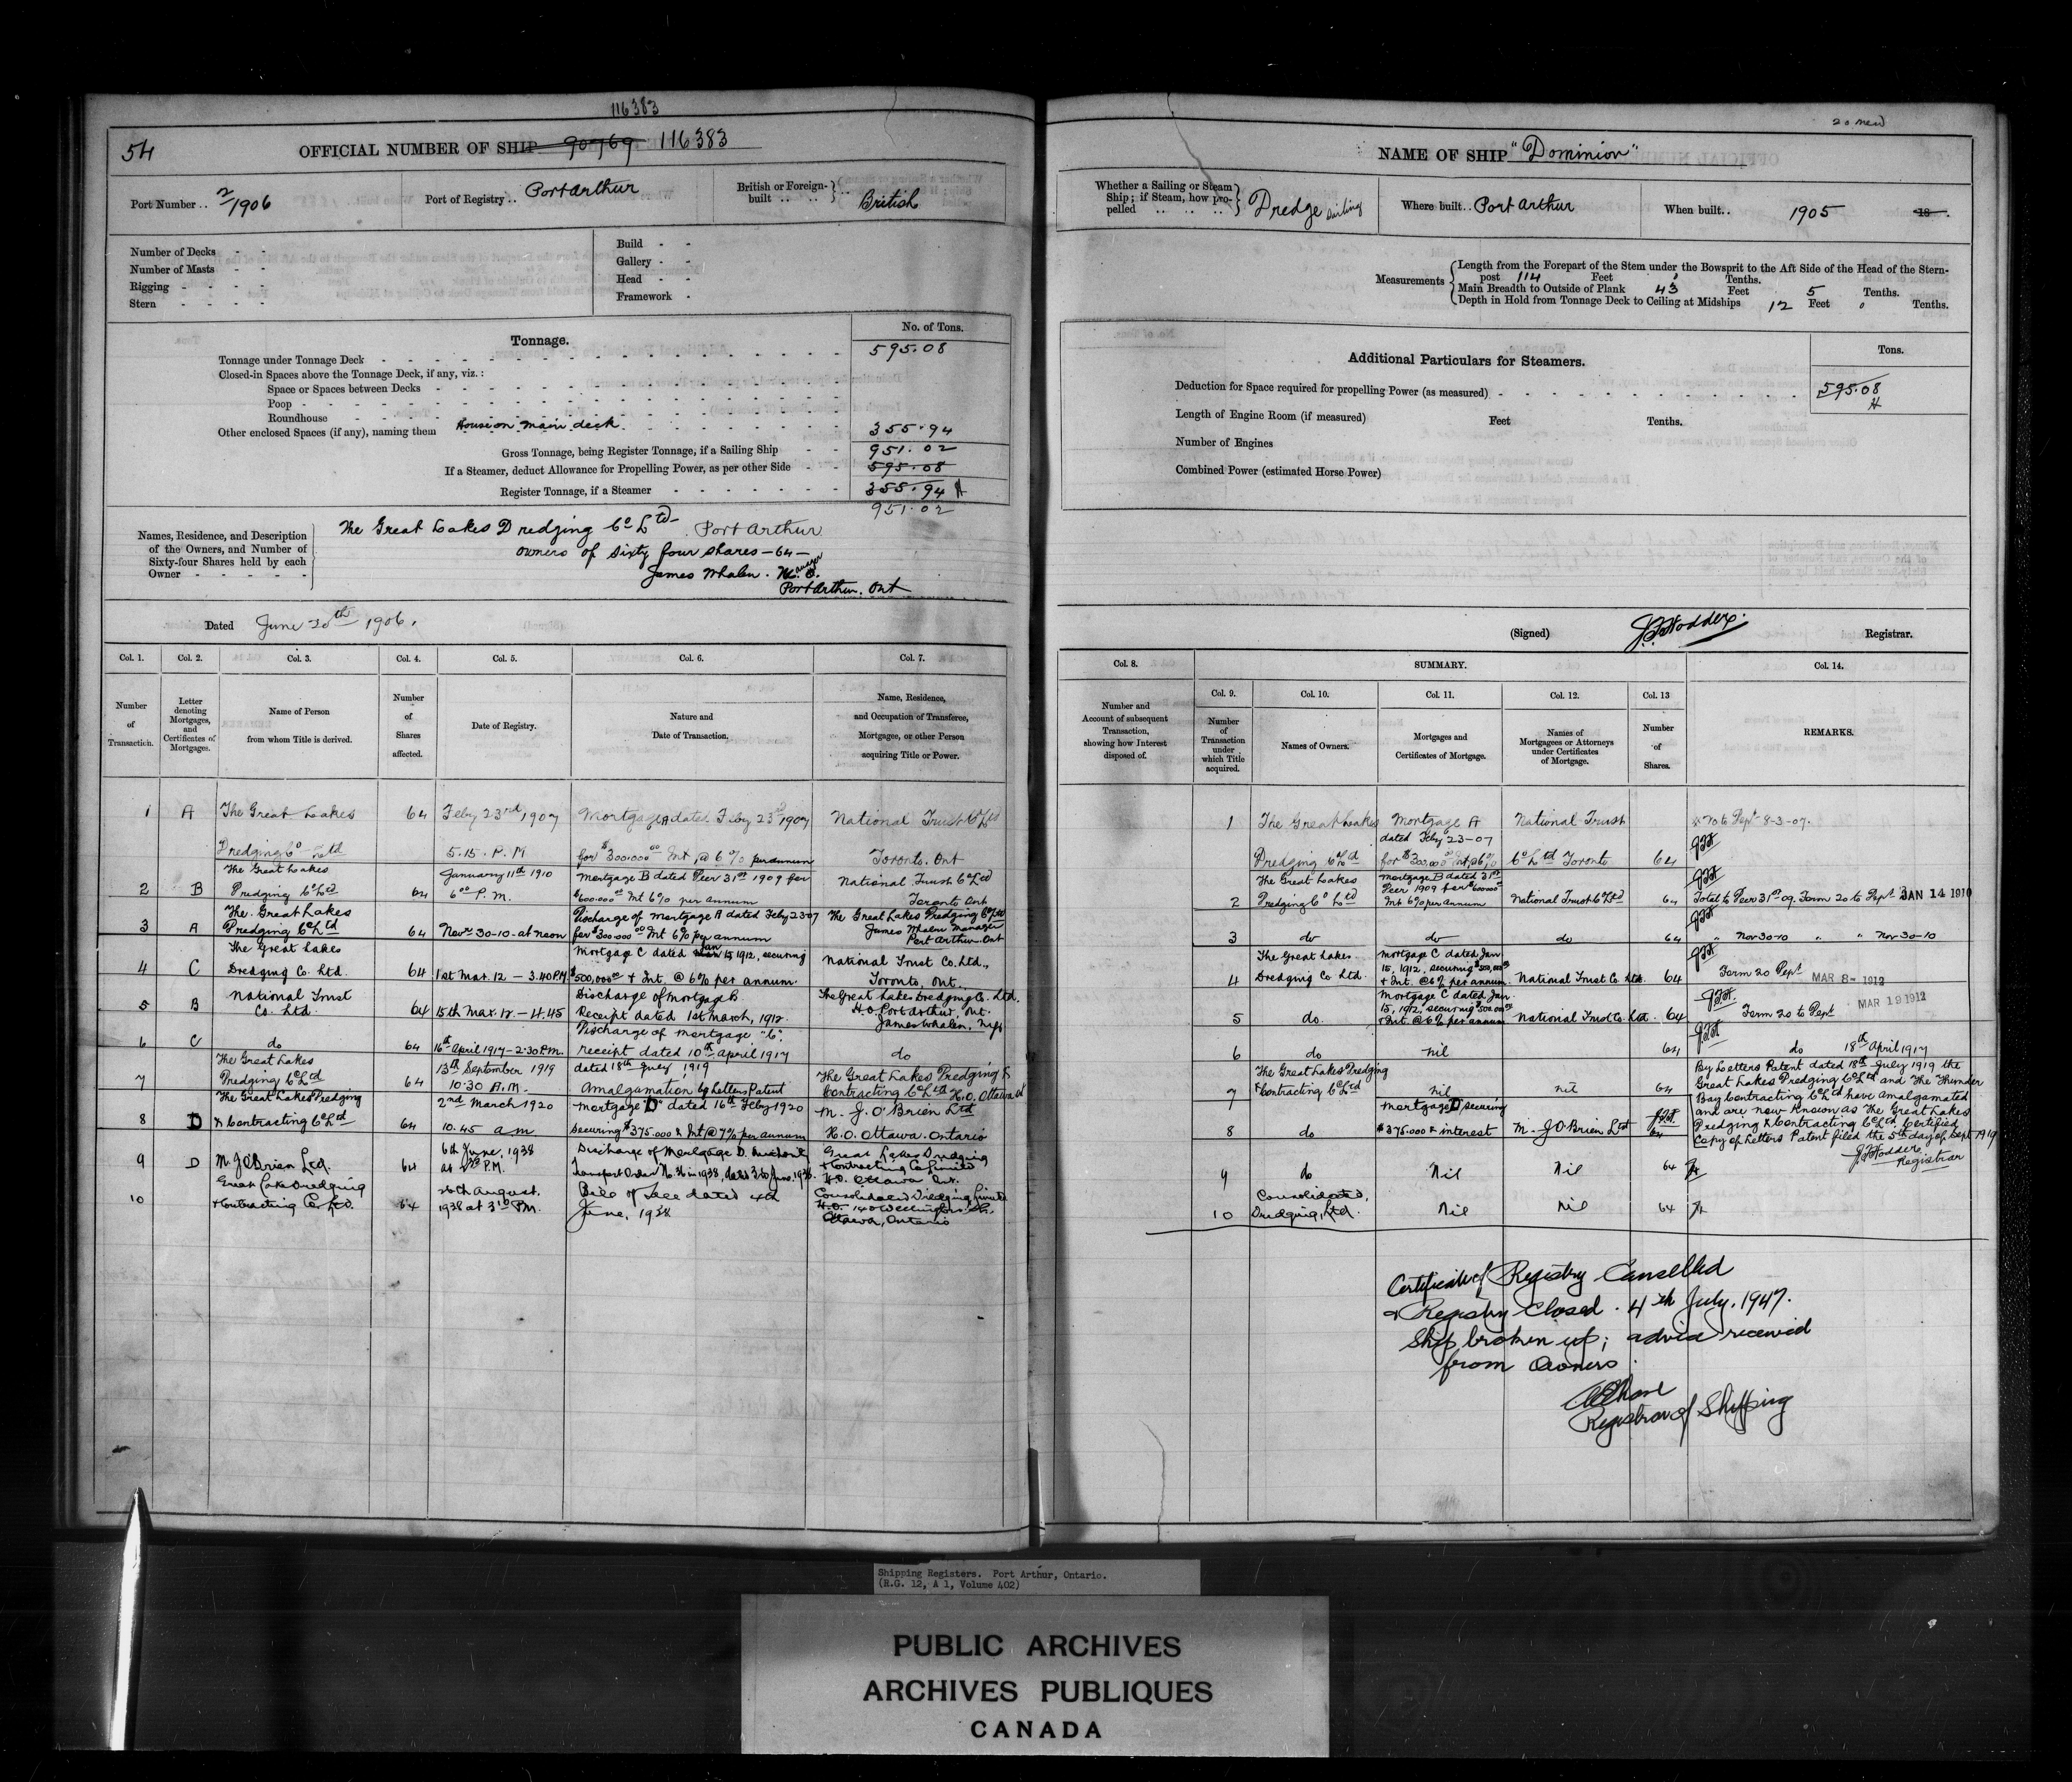 116383
54
OFFICIAL NUMBER OF SHIP 90769 116383
Port Number .. 2/1906
Port of Registry .. Port Arthur
British or Foreign-built .. .. British
Number of Decks - -
Number of Masts - -
Rigging - - - -
Stern - - - -
Build - -
Gallery - -
Head - -
Framework -
Tonnage.
No. of Tons.
Tonnage under Tonnage Deck 595.08
Closed-in Spaces above the Tonnage Deck, if any, viz.:
Space or Spaces between Decks
Poop
Roundhouse
Other enclosed Spaces (if any), naming them House on main deck 355.94
Gross Tonnage, being Register Tonnage, if a Sailing Ship 951.02
If a Steamer, deduct Allowance for Propelling Power, as per other Side 595.08
Register Tonnage, if a Steamer 355.94 H
951.02
Names, Residence, and Description of the Owners, and Number of Sixty-four Shares held by each Owner - - - - -
The Great Lakes Dredging Co Ltd Port Arthur
owners of sixty four shares - 64 -
James Whalen. Manager
Port Arthur. Ont
Dated June 20th 1906.
Col. 1. Col. 2. Col. 3. Col. 4. Col. 5. Col. 6. Col. 7.
Number of Transaction.
Letter denoting Mortgages, and Certificates of Mortgages.
Name of Person from whom Title is derived.
Number of Shares affected.
Date of Registry.
Nature and Date of Transaction.
Name, Residence, and Occupation of Transferee, Mortgagee, or other Person acquiring Title or Power.
1 A The Great Lakes Dredging Co Ltd 64 Feby 23rd 1907 5.15. P.M Mortgage A dated Feby 23rd 1907 for $300.000.00 Int @ 6% per annum National Trust Co Ltd Toronto. Ont
2 B The Great Lakes Dredging Co Ltd 64 January 11th 1910 6.00 P.M. Mortgage B dated Decr 31st 1909 for $600.000 Int 6% per annum National Trust Co Ltd Toronto Ont
3 A The Great Lakes Dredging Co Ltd 64 Novr 30-10-at noon Discharge of Mortgage A dated Feby 23 07 for $300.000.00 Int 6% per annum The Great Lakes Dredging Co Ltd James Whalen Manager Port Arthur. Ont
4 C The Great Lakes Dredging Co. Ltd. 64 1st Mar. 12 - 3.40 P.M. Mortgage C dated Jan 15, 1912, securing $500,000.00 + Int. @ 6% per annum National Trust Co. Ltd., Toronto, Ont.
5 B National Trust Co. Ltd. 64 15th Mar. 12 - 4.45 Discharge of Mortgage B. Receipt dated 1st March, 1912. The Great Lakes Dredging Co. Ltd. H.O. Port Arthur, Ont. James Whalen, Mgr
6 C do 64 16th April 1917-2.30 P.M. Discharge of Mortgage "C". receipt dated 10th April 1917 do
7 The Great Lakes Dredging Co Ltd 64 13th September 1919 10.30 A.M. dated 18th July 1919 Amalgamation by Letters Patent The Great Lakes Dredging & Contracting Co Ltd H.O. Ottawa Ont
8 D The Great Lakes Dredging & Contracting Co Ltd 64 2nd March 1920 10.45 am Mortgage "D" dated 16th Feby 1920 securing $375.000 & Int @ 7% per annum M. J. O'Brien Ltd H.O. Ottawa. Ontario
9 D M. J. O'Brien Ltd. 64 6th June, 1938 at P.M. Discharge of Mortgage D. Transport Order No. 36 in 1938, dated June, 1938. Great Lakes Dredging & Contracting Co Limited H.O. Ottawa Ont.
10 Great Lakes Dredging & Contracting Co Ltd. 64 26th August, 1938 at P.M. Bill of Sale dated 4th June, 1938 Consolidated Dredging Limited H.O. 140 Wellington St., Ottawa, Ontario
20 new
NAME OF SHIP "Dominion"
Whether a Sailing or Steam Ship; if Steam, how propelled .. .. .. Dredge Sailing
Where built.. Port Arthur
When built.. 1905 18 .
Measurements
Length from the Forepart of the Stem under the Bowsprit to the Aft Side of the Head of the Stern-post 114 Feet Tenths.
Main Breadth to Outside of Plank 43 Feet 5 Tenths.
Depth in Hold from Tonnage Deck to Ceiling at Midships 12 Feet 0 Tenths.
Additional Particulars for Steamers.
Tons.
Deduction for Space required for propelling Power (as measured) 595.08
H
Length of Engine Room (if measured) Feet Tenths.
Number of Engines
Combined Power (estimated Horse Power)
(Signed) J.F. Hodder. Registrar.
Col. 8. SUMMARY. Col. 14.
Col. 9. Col. 10. Col. 11. Col. 12. Col. 13
Number and Account of subsequent Transaction, showing how Interest disposed of.
Number of Transaction under which Title acquired.
Names of Owners.
Mortgages and Certificates of Mortgage.
Names of Mortgagees or Attorneys under Certificates of Mortgage.
Number of Shares.
REMARKS.
1 The Great Lakes Dredging Co Ltd Mortgage A dated Feby 23-07 for $300,000 Int @ 6% National Trust Co Ltd Toronto 64 20 to Dept 8-3-07. JFH
2 The Great Lakes Dredging Co Ltd Mortgage B dated 31st Decr 1909 for $600000 Int 6% per annum National Trust Co Ltd 64 JFH Total to Decr 31st 09. Form 20 to Dept JAN 14 1910
3 do do do 64 JFH " Nov 30-10 " " Nov 30-10
4 The Great Lakes Dredging Co Ltd. Mortgage C dated Jan 15, 1912, securing $500,000.00 + Int. @ 6% per annum National Trust Co. Ltd. 64 JFH Form 20 Dept MAR 8- 1912
5 do. Mortgage C dated Jan. 15, 1912, securing $500,000.00 + Int. @ 6% per annum National Trust Co. Ltd. 64 JFH. Form 20 to Dept MAR 19 1912
6 do nil 64 JFH do 18th April 1917
7 The Great Lakes Dredging & Contracting Co Ltd nil nil 64
8 do Mortgage "D" securing $375.000 & interest M. J O'Brien Ltd JFH 64
By Letters Patent dated 18th July 1919 the
Great Lakes Dredging Co Ltd and The Thunder
Bay Contracting Co Ltd have amalgamated
and are now known as The Great Lakes
Dredging & Contracting Co Ltd Certified
Copy of Letters Patent filed the 5th day of Sept 1919
J.F. Hodder
Registrar
9 do Nil Nil 64
10 Consolidated Dredging, Ltd. Nil Nil 64
Certificate of Registry Cancelled
& Registry Closed. 4th July. 1947.
Ship broken up; advice received
from Owners.
Registrar of Shipping
Shipping Registers. Port Arthur, Ontario.
(R.G. 12, A 1, Volume 402)
PUBLIC ARCHIVES
ARCHIVES PUBLIQUES
CANADA